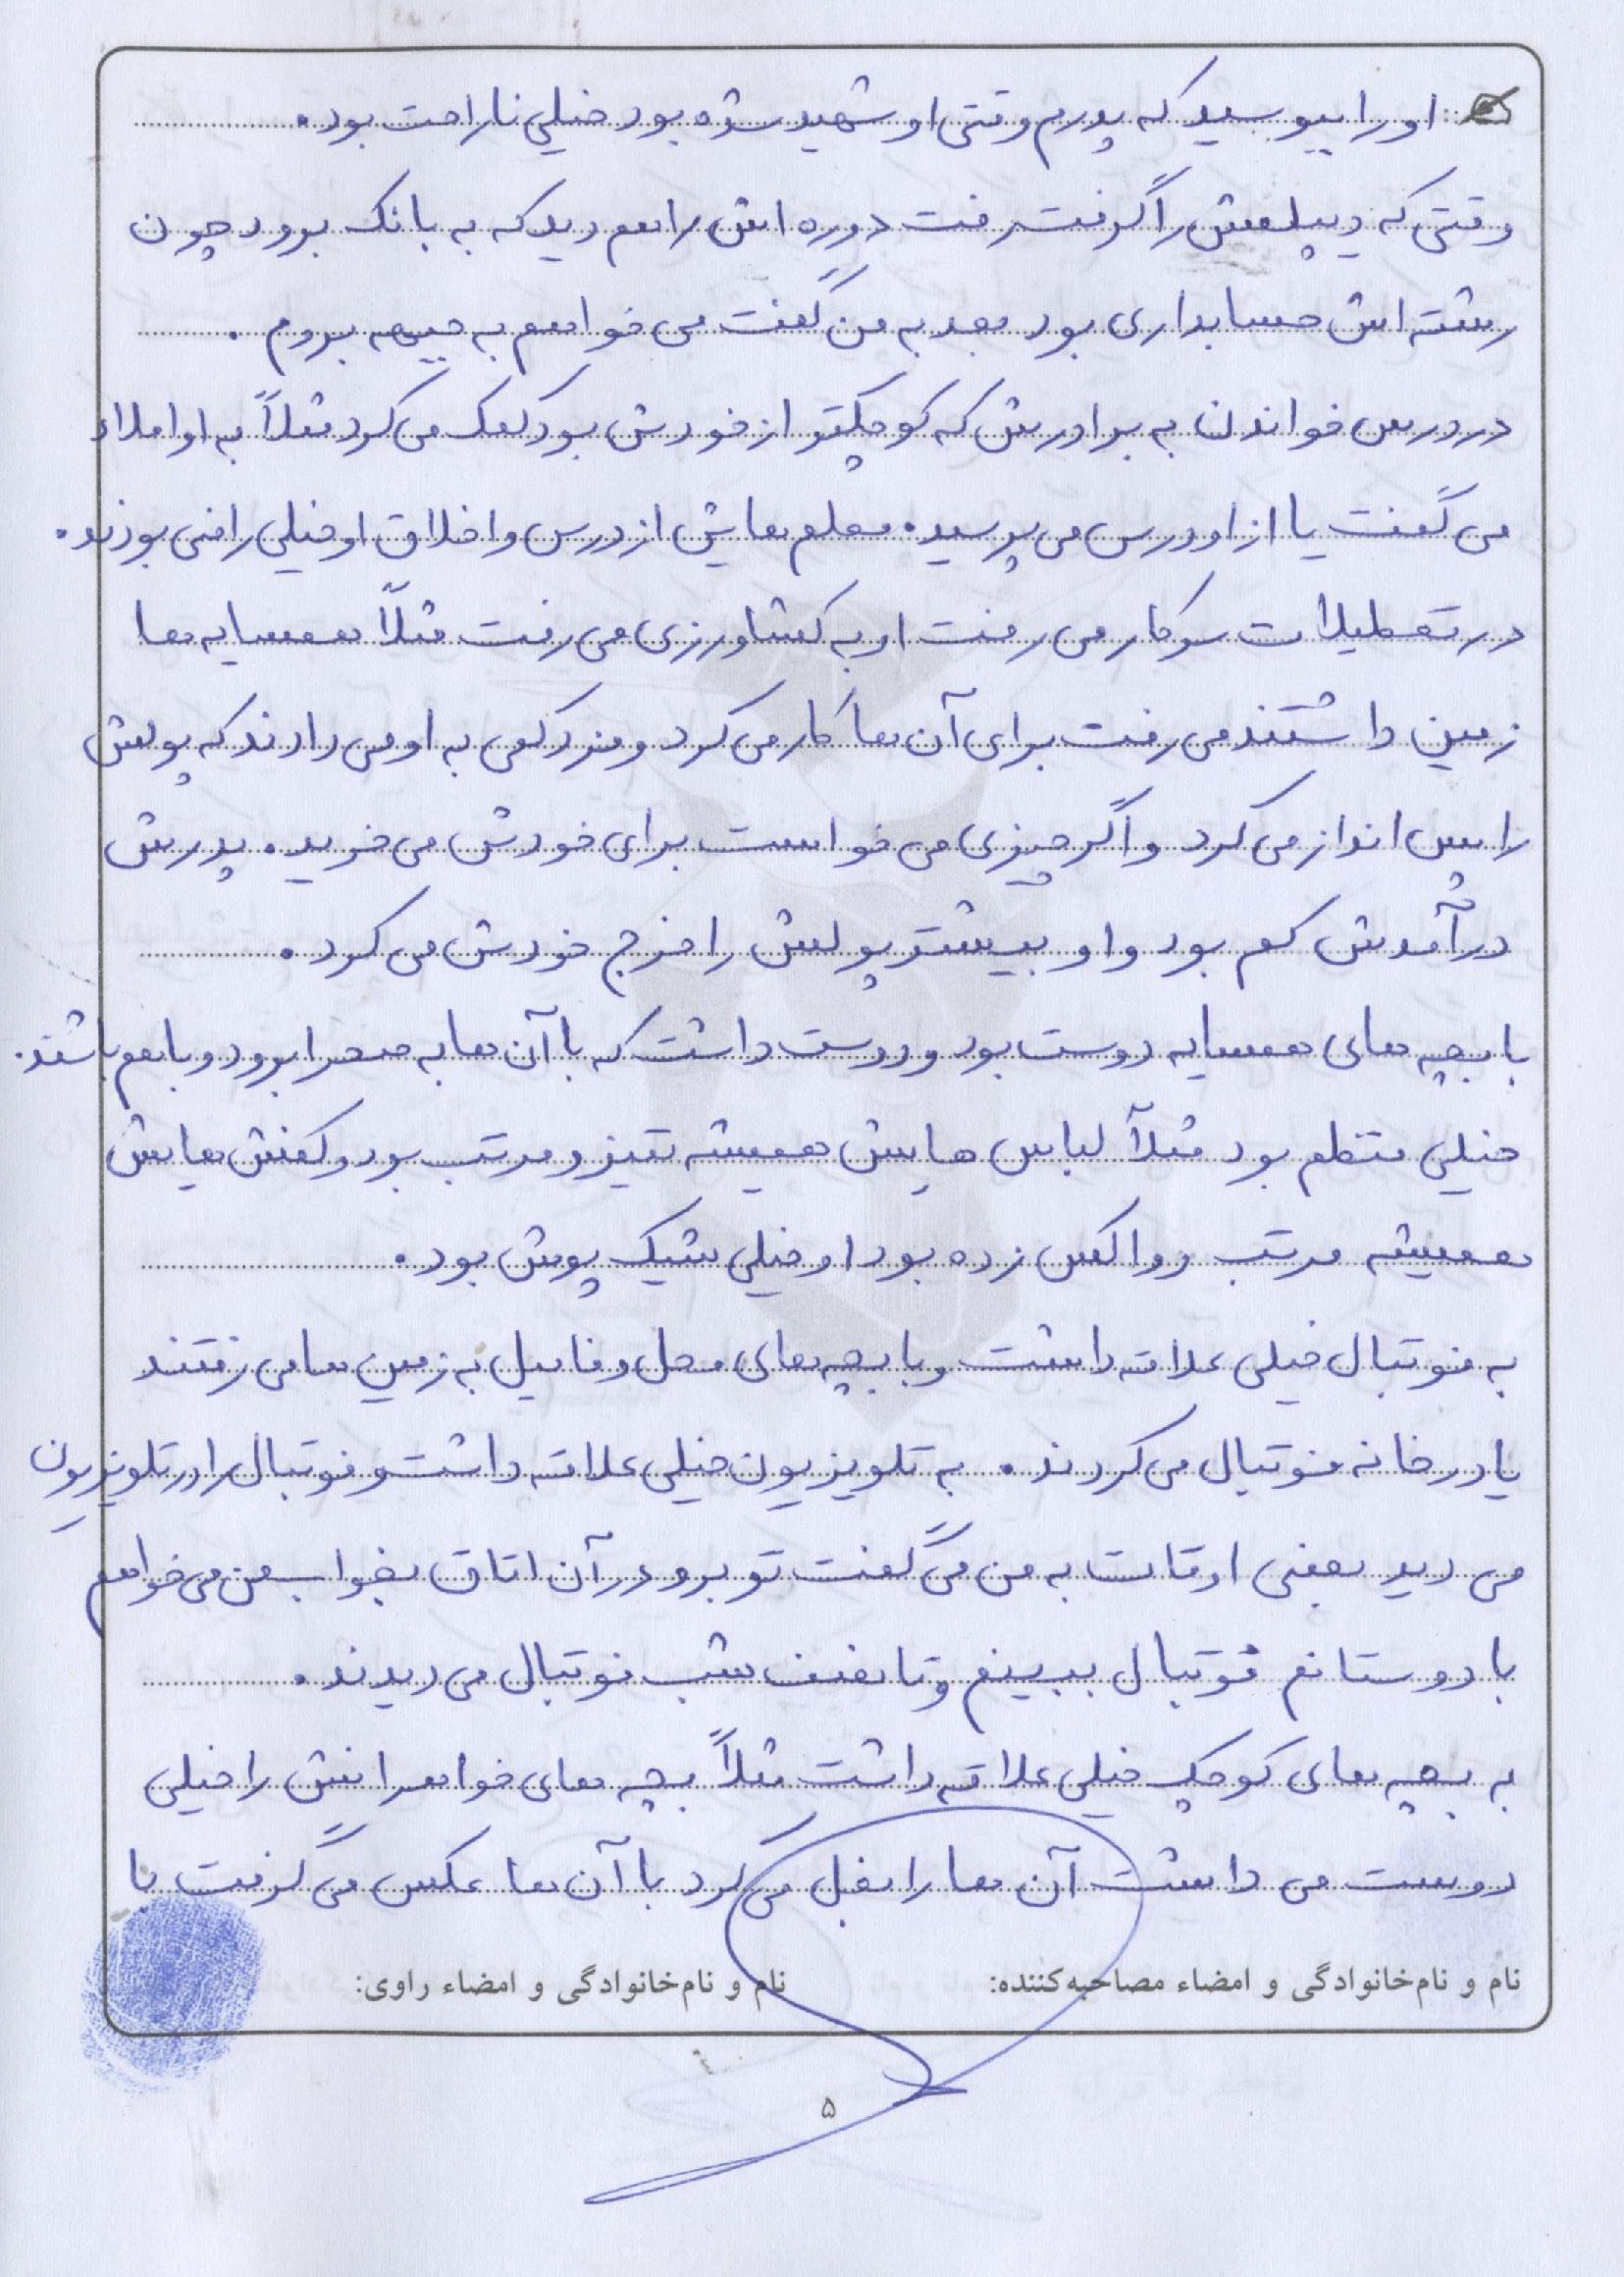 او را ببوسید که پدرم وقتی او شهید شده بود خیلی ناراحت بود.
وقتی که دیپلمش را گرفت رفت دوره اش را هم دید که به بانک برود چون
رشته اش حسابداری بود بعد به من گفت می خواهم به جبهه بروم.
در درس خواندن به برادرش که کوچکتر از خودش بود کمک می کرد مثلاً به او املاء
می گفت یا از او درس می پرسید. معلم هایش از درس و اخلاق او خیلی راضی بودند.
در تعطیلات سر کار می رفت او به کشاورزی می رفت مثلاً همسایه ها
زمین داشتند می رفت برای آن ها کار می کرد و مزد کمی به او می دادند که پولش
را پس انداز می کرد و اگر چیزی می خواست برای خودش می خرید. پدرش
درآمدش کم بود و او بیشتر پولش را خرج خودش می کرد.
با بچه های همسایه دوست بود و دوست داشت که با آن ها به صحرا برود و با هم باشند.
خیلی منظم بود مثلاً لباس هایش همیشه تمیز و مرتب بود و کفش هایش
همیشه مرتب و واکس زده بود او خیلی شیک پوش بود.
به فوتبال خیلی علاقه داشت و با بچه های محل و فامیل به زمین ها می رفتند
یا در خانه فوتبال می کردند. به تلویزیون خیلی علاقه داشت و فوتبال را در تلویزیون
می دید بعضی اوقات به من می گفت تو برو در آن اتاق بخواب من می خواهم
با دوستانم فوتبال ببینم و تا نصف شب فوتبال می دیدند.
به بچه های کوچک خیلی علاقه داشت مثلاً بچه های خواهرانش را خیلی
دوست می داشت آن ها را بغل می کرد با آن ها عکس می گرفت با
نام و نام‌خانوادگی و امضاء مصاحبه‌کننده: نام و نام‌خانوادگی و امضاء راوی:
۵